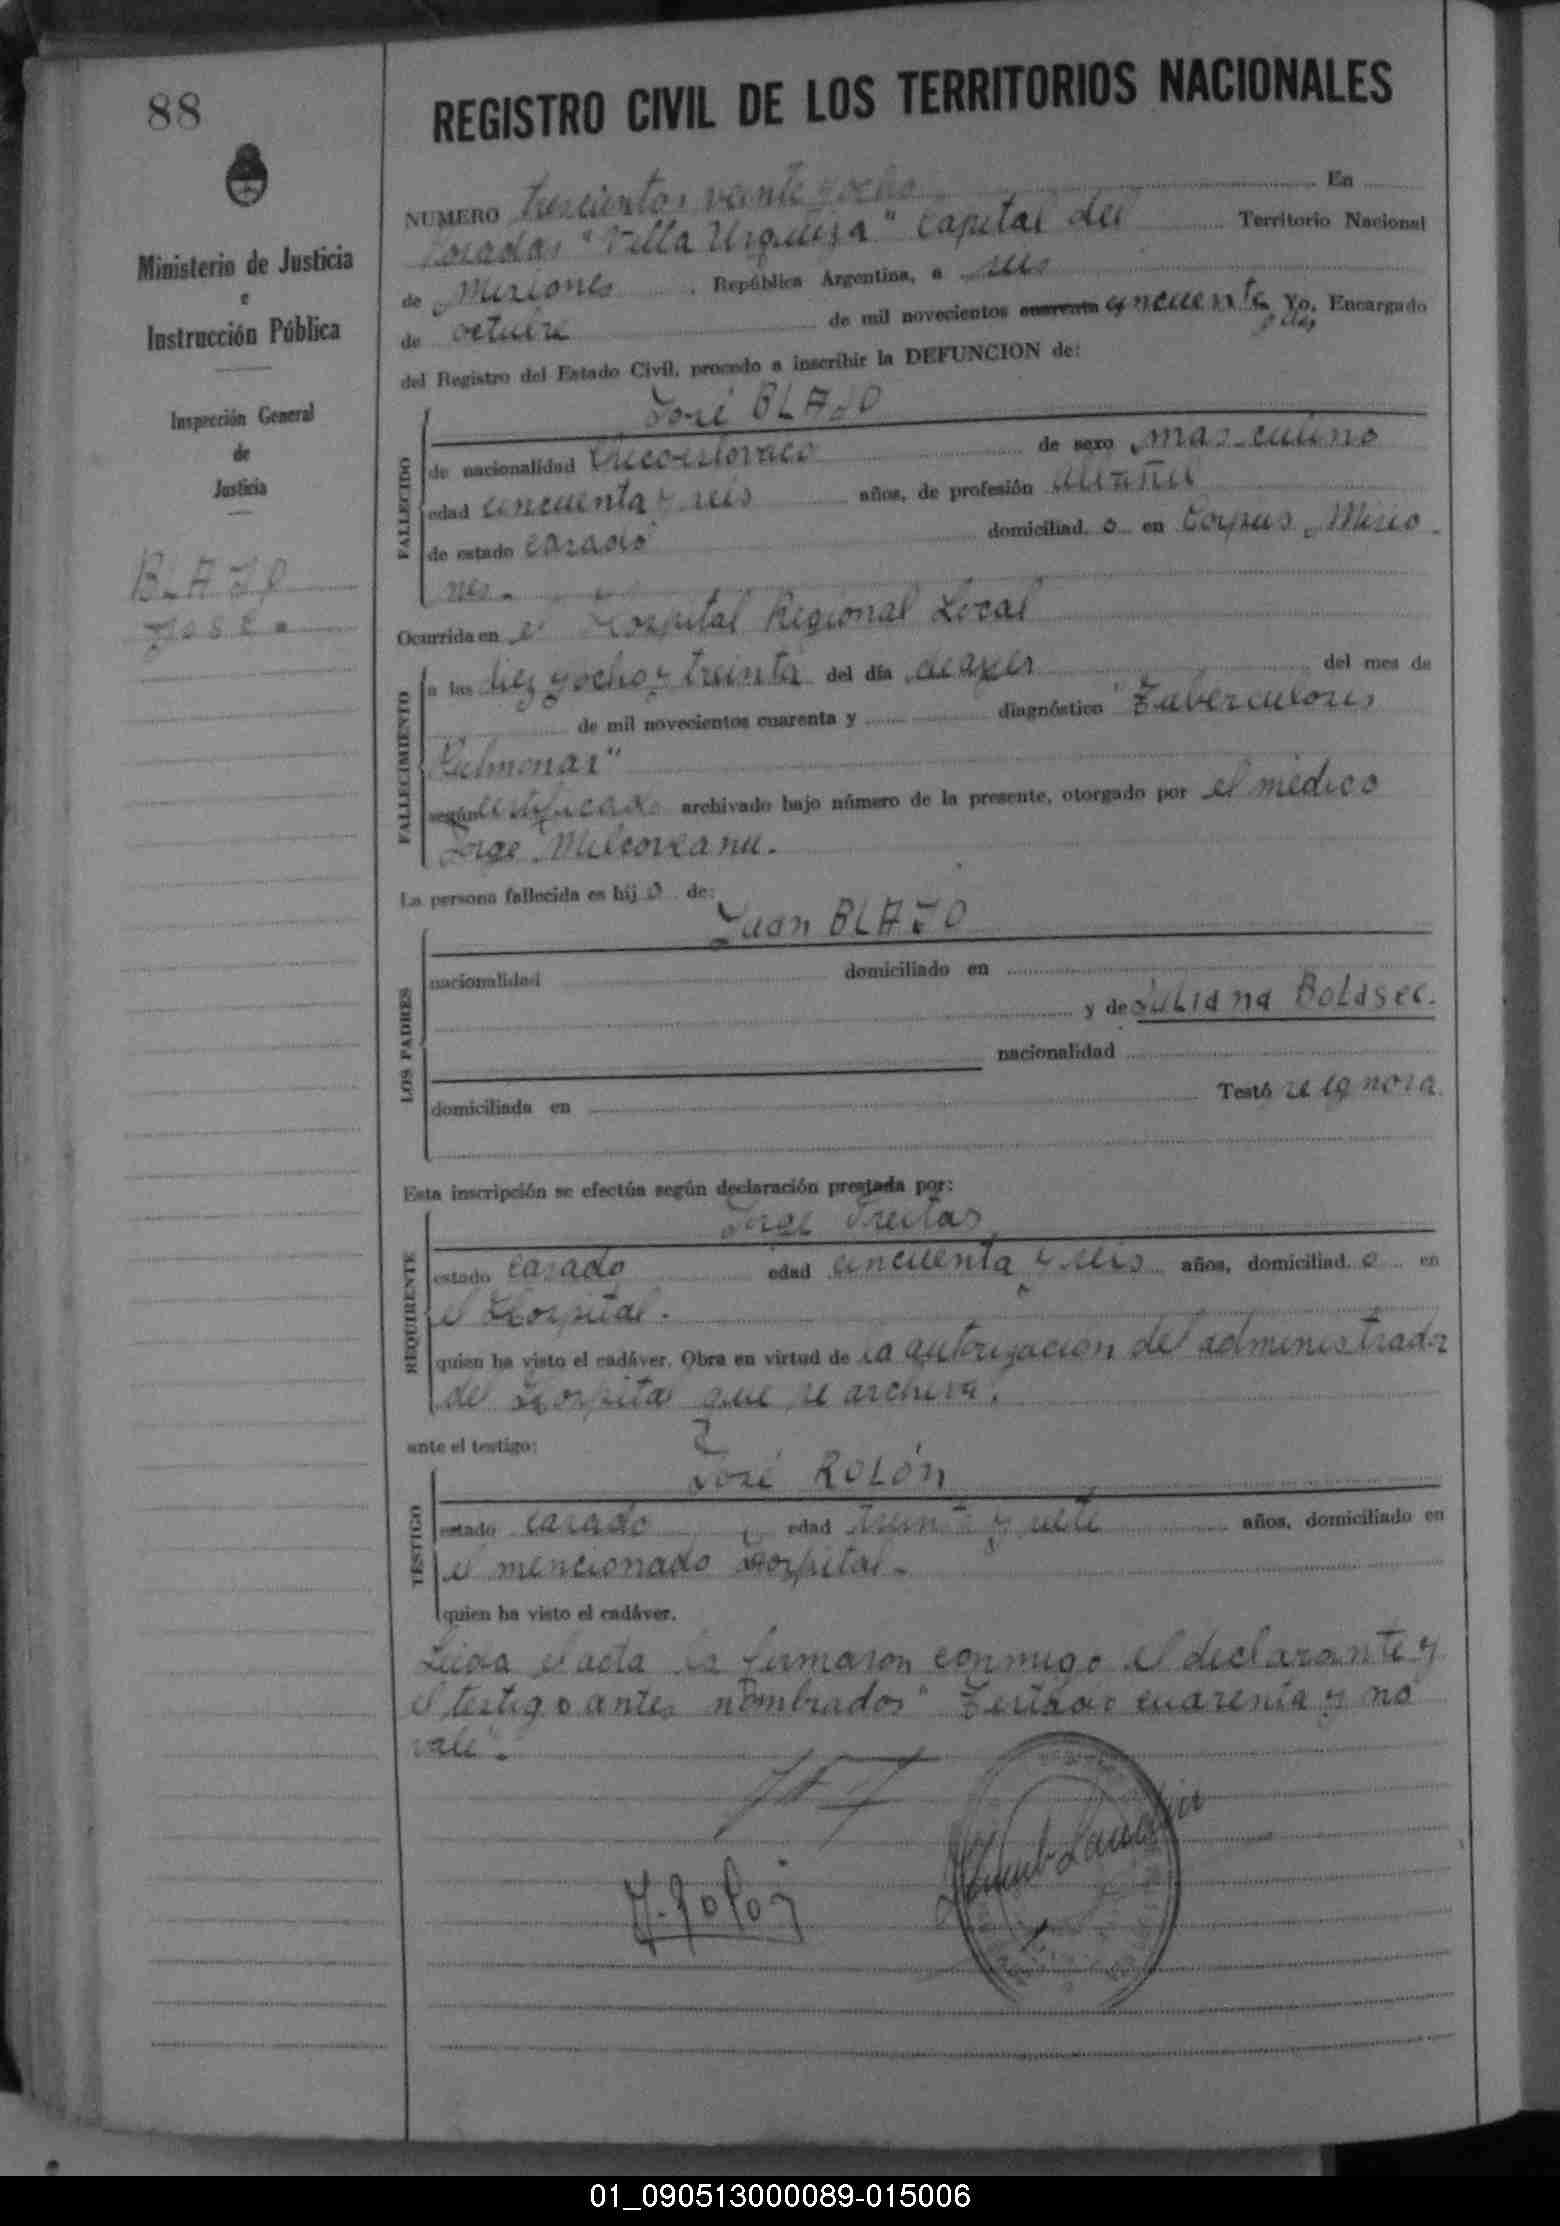 88
REGISTRO CIVIL DE LOS TERRITORIOS NACIONALES
Ministerio de Justicia
e
Instrucción Pública
Inspección General
de
Justicia
BLAJO
José.
NUMERO trescientos veinte y ocho En
Posadas "Villa Urquiza" Capital del Territorio Nacional
de Misiones República Argentina, a seis
de octubre de mil novecientos cuarenta cincuenta Yo, Encargado
del Registro del Estado Civil, procedo a inscribir la DEFUNCION de:
José BLAJO
FALLECIDO
de nacionalidad Checoeslovaco de sexo masculino
edad cincuenta y seis años, de profesión albañil
de estado casado domiciliad o en Corpus, Misio
nes.
Ocurrida en el Hospital Regional Local
FALLECIMIENTO
a las diez y ocho y treinta del día de ayer del mes de
de mil novecientos cuarenta y diagnóstico "Tuberculosis
Pulmonar"
según certificado archivado bajo número de la presente, otorgado por el médico
Jorge
La persona fallecida es hij o de:
Juan BLAJO
LOS PADRES
nacionalidad domiciliado en
y de Juliana Bolasec.
nacionalidad
domiciliada en Testó se ignora.
Esta inscripción se efectúa según declaración prestada por:
Jorge Freitas
REQUIRENTE
estado casado edad cincuenta y seis años, domiciliad o en
el Hospital.
quien ha visto el cadáver. Obra en virtud de la autorización del administrador
del Hospital que se archiva.
ante el testigo:
José ROLÓN
TESTIGO
estado casado edad treinta y siete años, domiciliado en
el mencionado Hospital.
quien ha visto el cadáver.
Leída el acta la firmaron conmigo el declarante y
el testigo antes nombrados "Testado cuarenta y no
vale".
J. Rolón
01_090513000089-015006